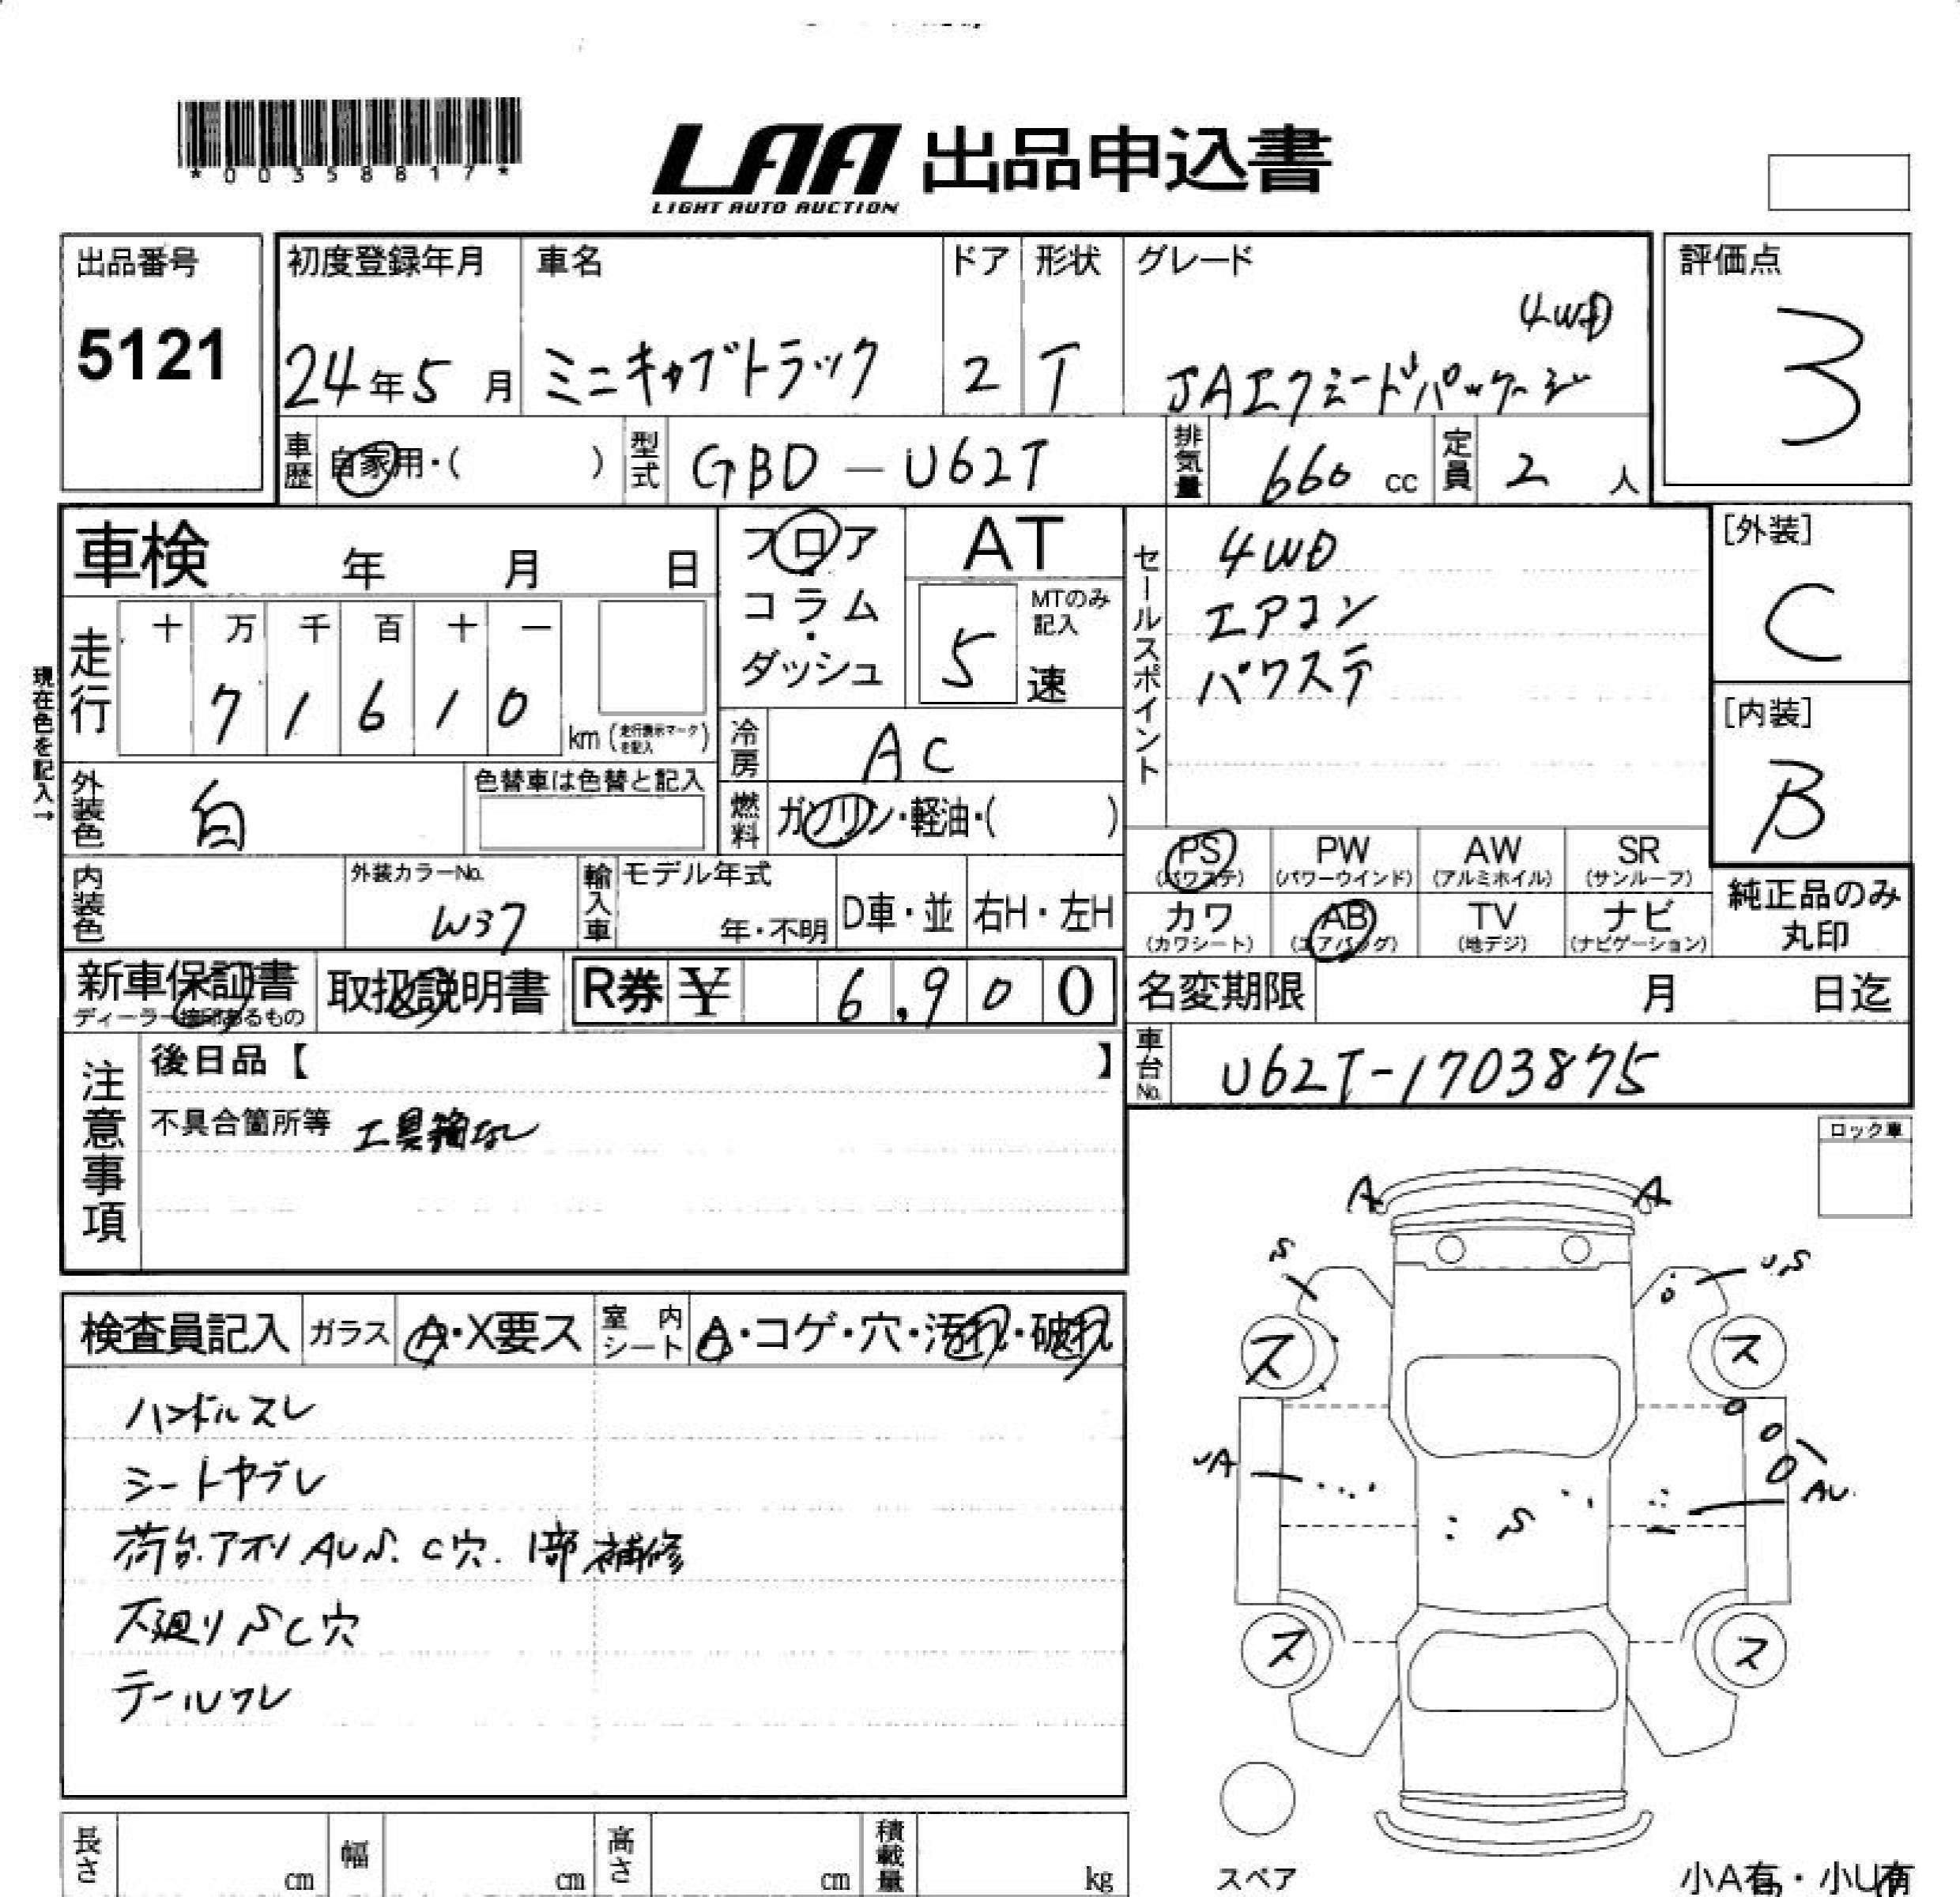 *00358817*
LAA 出品申込書
LIGHT AUTO AUCTION
出品番号
5121
初度登録年月
24年5月
車名
ミニキャブトラック
ドア
2
形状
T
グレード
4WD
JAエクシードパッケージ
評価点
3
車歴 自家用・( )
型式 GBD-U62T
排気量 660 cc
定員 2 人
車検 年 月 日
フロア
コラム・
ダッシュ
AT
MTのみ記入
5 速
セールスポイント
4WD
エアコン
パワステ
[外装]
C
[内装]
B
現在色を記入→
走行
十 万 千 百 十 一
7 1 6 1 0 km (走行表示マークを記入)
冷房 AC
燃料 ガソリン・軽油・( )
外装色 白
色替車は色替と記入
内装色
外装カラーNo.
W37
輸入車
モデル年式
年・不明
D車・並
右H・左H
PS (パワステ)
PW (パワーウインド)
AW (アルミホイル)
SR (サンルーフ)
カワ (カワシート)
AB (エアバッグ)
TV (地デジ)
ナビ (ナビゲーション)
純正品のみ
丸印
新車保証書
ディーラー捺印あるもの
取扱説明書
R券 ¥ 6,900
名変期限 月 日迄
車台No. U62T-1703875
注意事項
後日品【 】
不具合箇所等 工具箱なし
ロック車
検査員記入
ガラス A・X要ス
室内シート A・コゲ・穴・汚れ・破れ
ハンドルスレ
シートヤブレ
荷台.アオリ AUS. C穴. 1部補修
下廻り SC穴
テールワレ
A A
S US
ス ス
UA AU
S
ス ス
スペア
長さ cm
幅 cm
高さ cm
積載量 kg
小A有・小U有